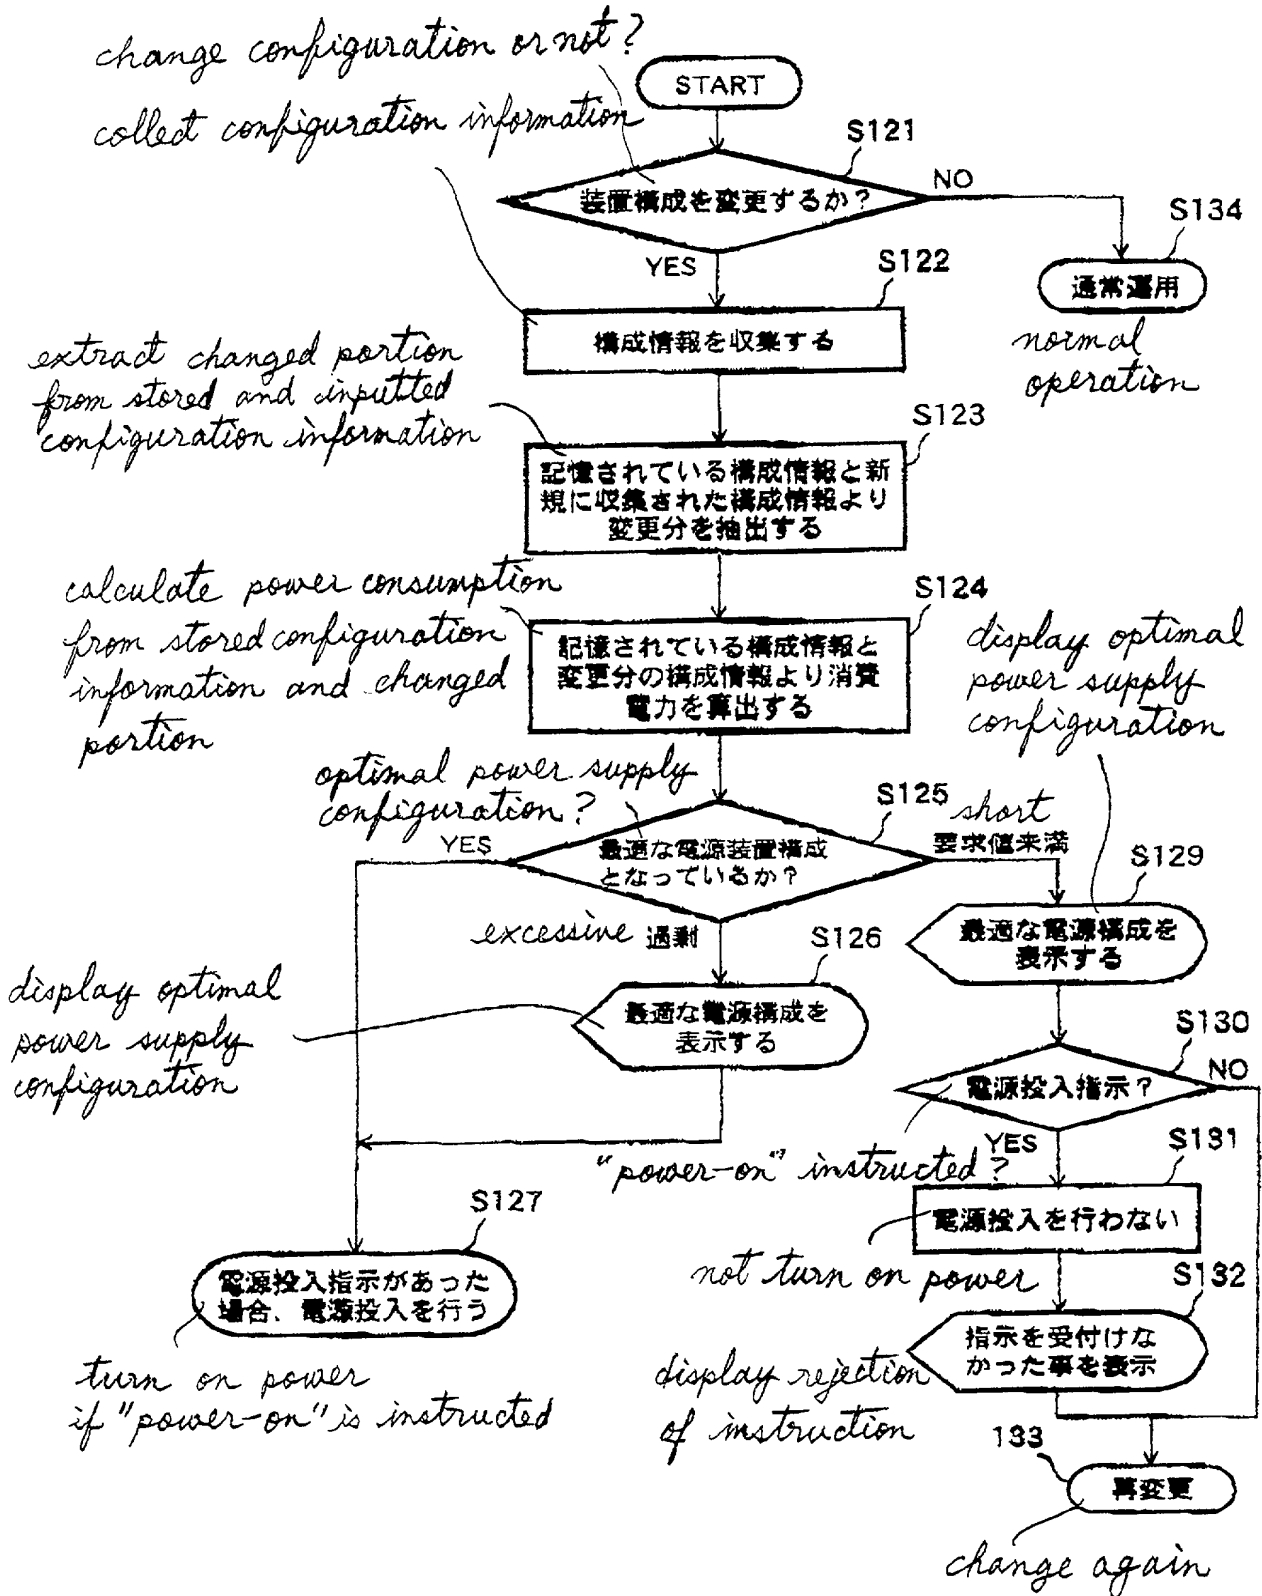 change configuration or not?
START
collect configuration information
S121
装置構成を変更するか?
NO
S134
YES
S122
通常運用
構成情報を収集する
normal
operation
extract changed portion
from stored and inputted
configuration information
S123
記憶されている構成情報と新
規に収集された構成情報より
変更分を抽出する
calculate power consumption
from stored configuration
information and changed
portion
S124
記憶されている構成情報と
変更分の構成情報より消費
電力を算出する
display optimal
power supply
configuration
optimal power supply
configuration?
S125
short
YES
要求値未満
最適な電源装置構成
となっているか?
S129
excessive 過剰
S126
最適な電源構成を
表示する
display optimal
power supply
configuration
最適な電源構成を
表示する
S130
NO
電源投入指示?
YES
"power-on" instructed?
S131
電源投入を行わない
S127
not turn on power
S132
電源投入指示があった
場合、電源投入を行う
指示を受付けな
かった事を表示
turn on power
if "power-on" is instructed
display rejection
of instruction
133
再変更
change again